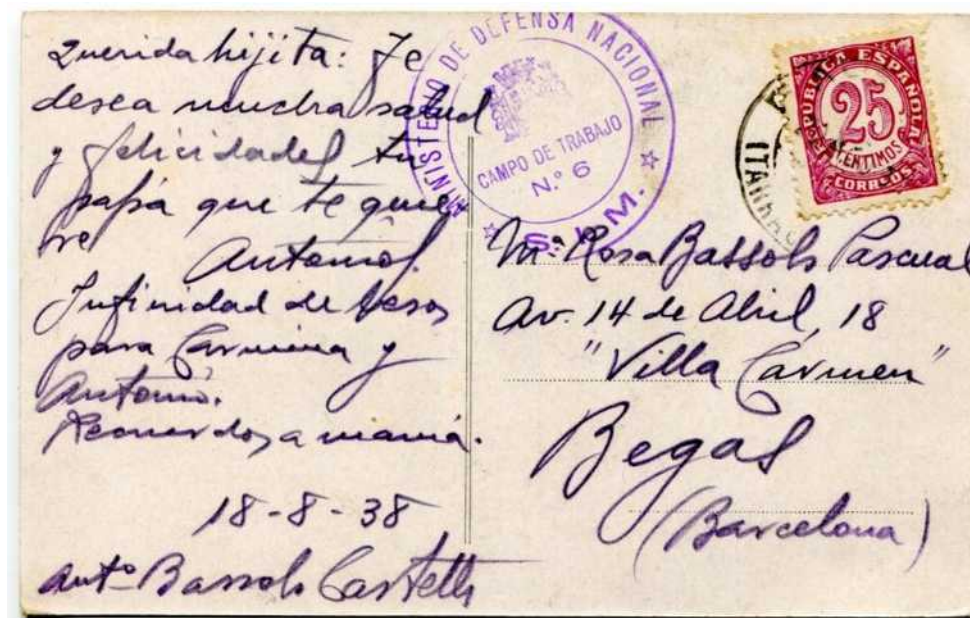 Querida hijita: Te
desea mucha salud
y felicidades tu
papá que te quie-
re
Antonio.
Infinidad de besos
para Carmina y
Antonio.
Recuerdos a mamá.
18-8-38
Antº Bassols Castells
MINISTERIO DE DEFENSA NACIONAL
CAMPO DE TRABAJO
N.º 6
S.I.M.
REPUBLICA ESPAÑOLA
25
CENTIMOS
CORREOS
Mª Rosa Bassols Pascual
Av. 14 de Abril, 18
"Villa Cármen"
Begas
(Barcelona)